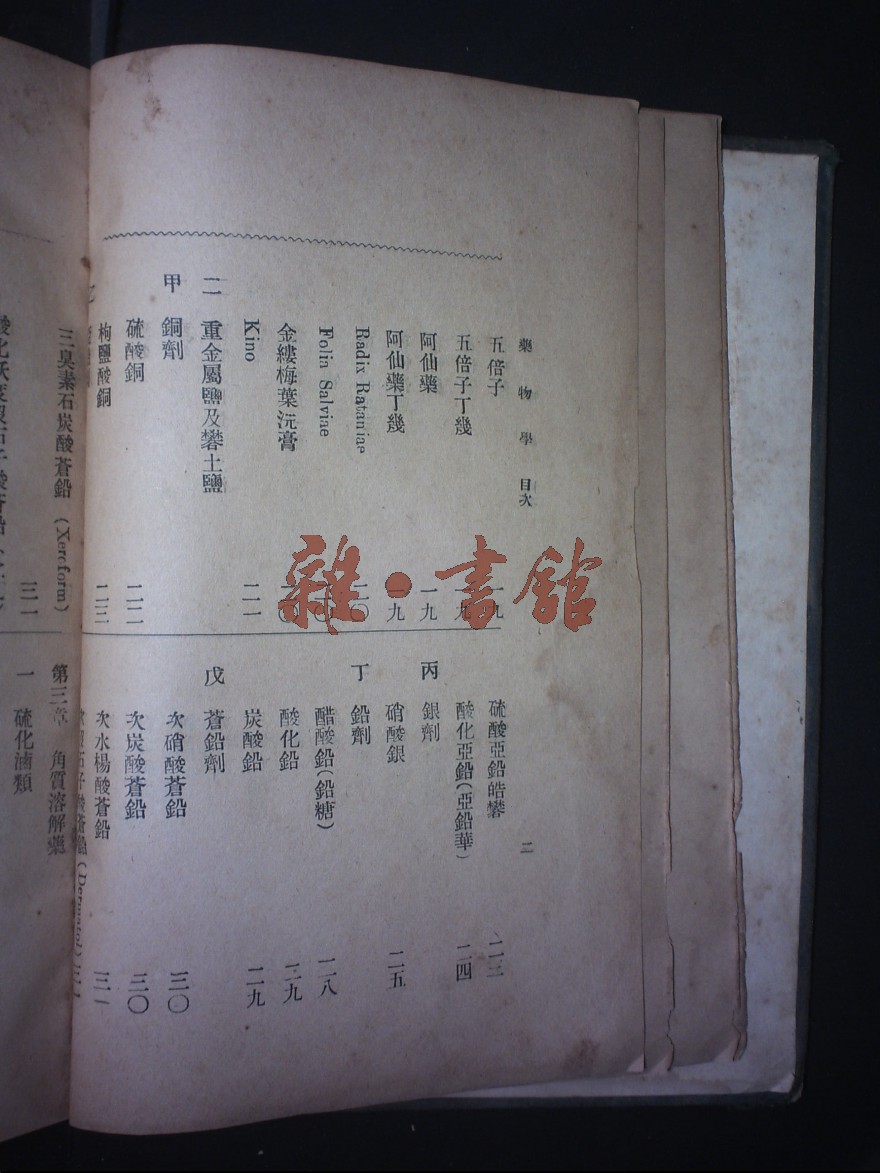 藥物學 目次 二
五倍子 一九
五倍子丁幾 一九
阿仙藥 一九
阿仙藥丁幾 一九
Radix Rataniae 二〇
Folia Salviae 二〇
金縷梅葉沅膏 二〇
Kino 二一
二 重金屬鹽及礬土鹽
甲 銅劑
硫酸銅 二二
枸鹽酸銅 二三
硫酸亞鉛皓礬 二三
酸化亞鉛(亞鉛華) 二四
丙 銀劑
硝酸銀 二五
丁 鉛劑
醋酸鉛(鉛糖) 二八
酸化鉛 二九
炭酸鉛 二九
戊 蒼鉛劑
次硝酸蒼鉛 三〇
次炭酸蒼鉛 三〇
次水楊酸蒼鉛 三一
(Dermatol)
三臭素石炭酸蒼鉛 (Xeroform) 三一
第三章 角質溶解藥
一 硫化滷類
雜·書館